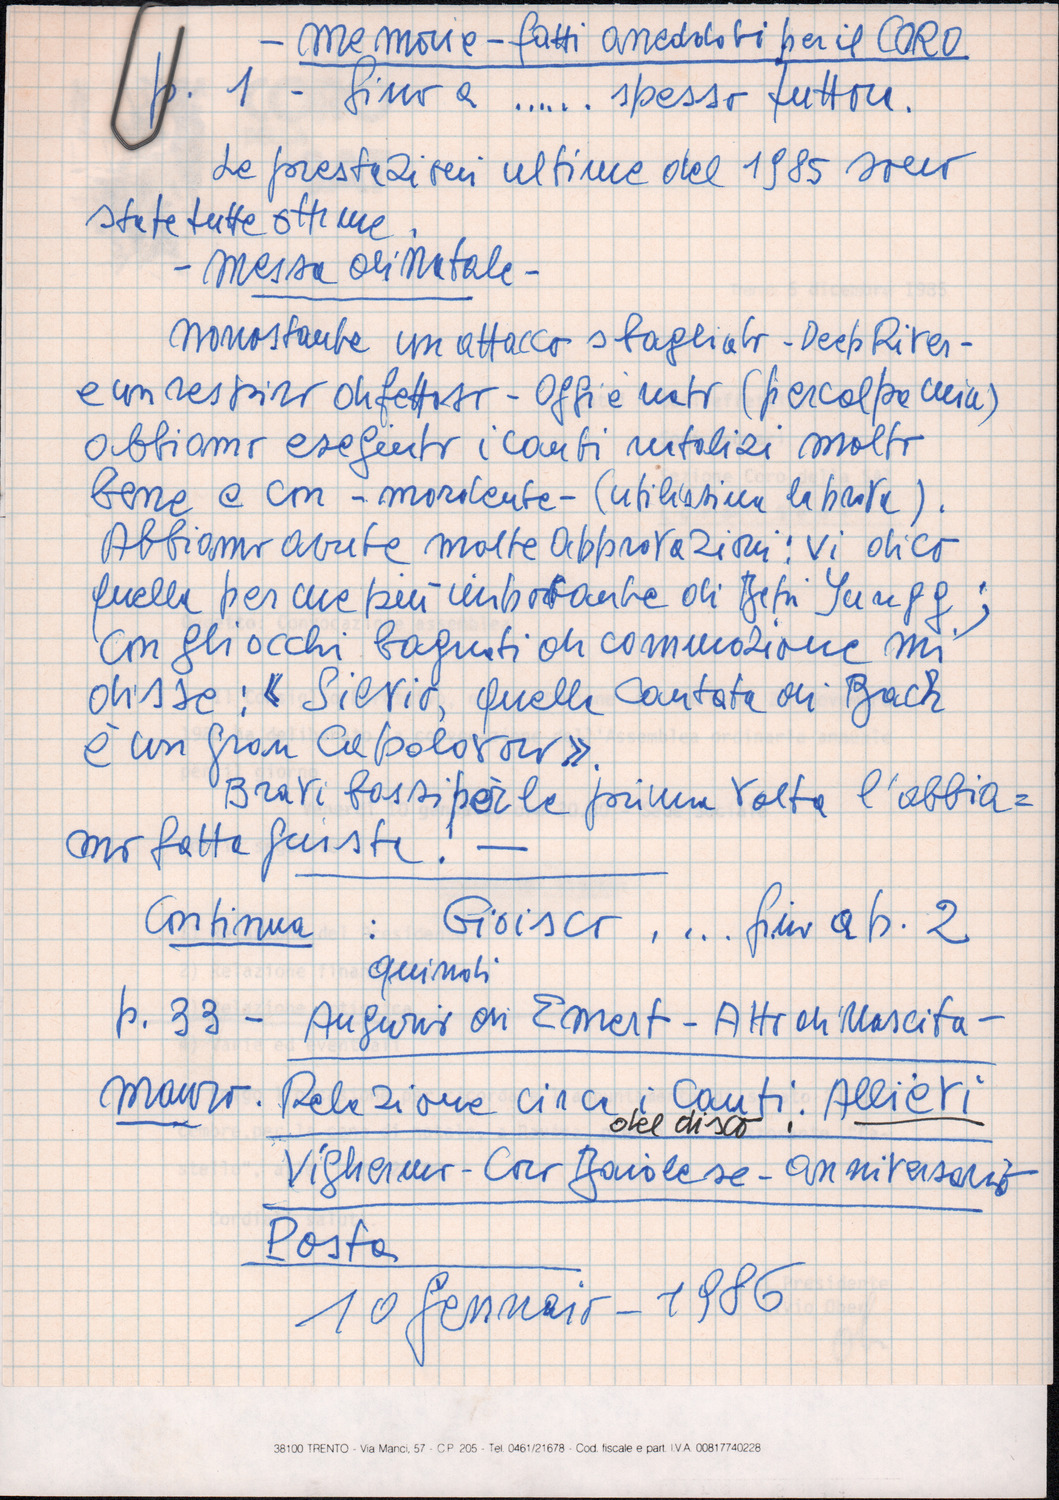 - Memorie - fatti aneddoti per il CORO
p. 1 - fino a ...... spesso tuttora.
Le prestazioni ultime del 1985 sono
state tutte ottime.
- Messa di Natale -
Nonostante un attacco sbagliato - Deep River -
e un respiro difettoso - Oggi è nato (per colpa mia)
abbiamo eseguito i canti natalizi molto
bene e con - mordente - (utilissima la prova).
Abbiamo avute molte approvazioni: vi dico
quella per me più importante di Bepi Jungg;
con gli occhi bagnati di commozione mi
disse: « Silvio, quella Cantata di Bach
è un gran capolavoro».
Bravi bassi perle prima volta l'abbia=
mo fatta giusta! —
Continua : Gioisco .... fino a p. 2
quindi
p. 33 - Augurio di Ernest - Atto di Nascita -
Mauro. Relazione circa i Canti. Allievi
del disco
Vigherno - Coro Baiolese - anniversario
Posta
10 Gennaio - 1986
38100 TRENTO - Via Manci, 57 - C.P. 205 - Tel. 0461/21678 - Cod. fiscale e part. I.V.A. 00817740228